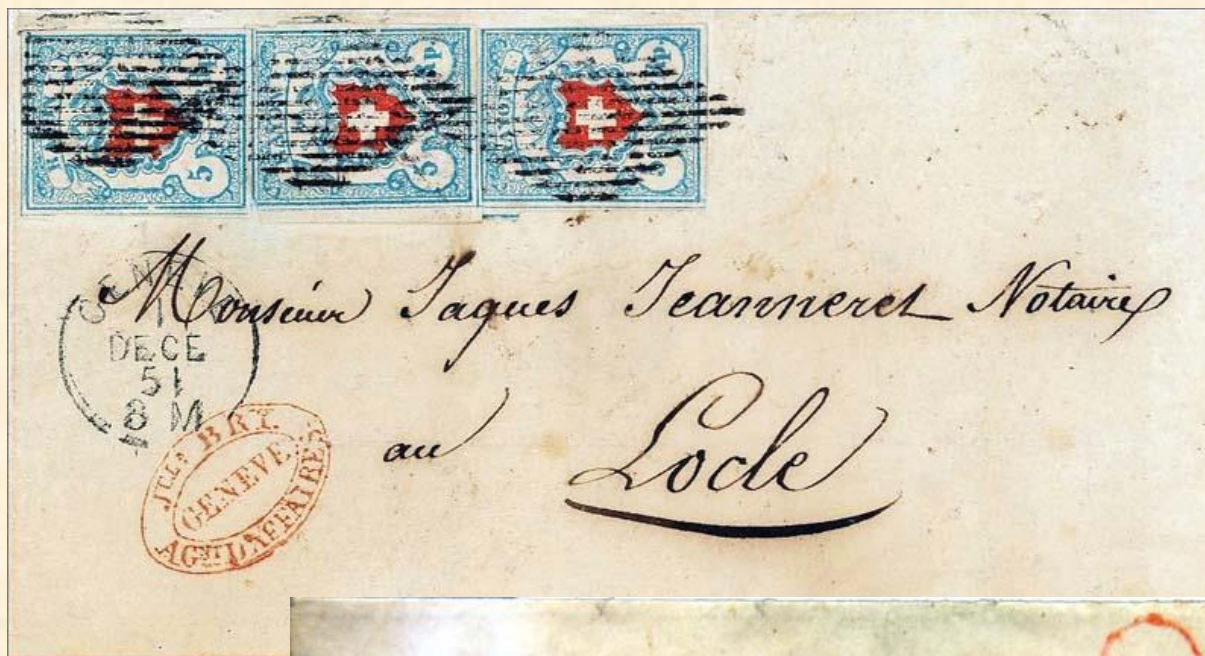 5
5
GENÈVE
1
DECE
51
8 M
Monsieur Jaques Jeanneret Notaire
au
Locle
BRY.
GENEVE
AGNT D'AFFAIRES